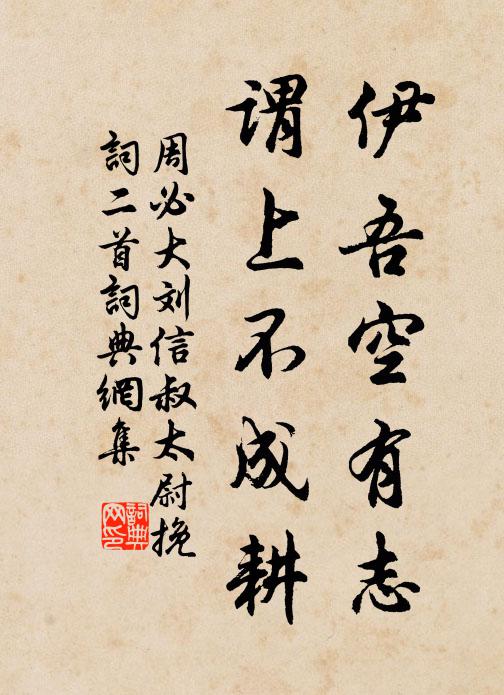 伊吾空有志
谓上不成耕
周必大刘信叔太尉挽
词二首词典網集
詞典網印